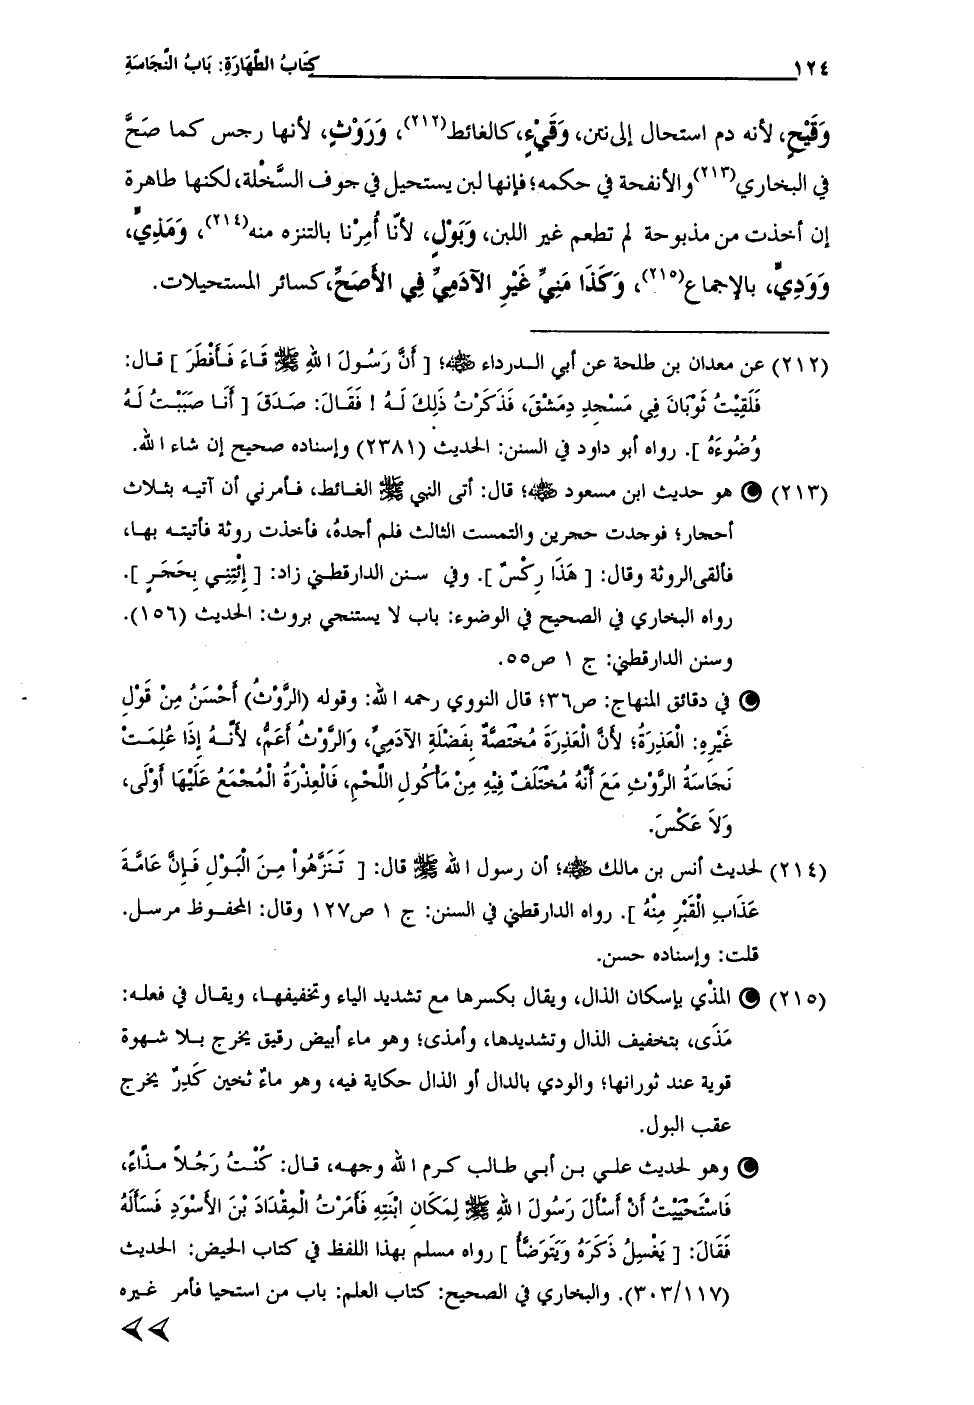 ١٢٤ كِتَابُ الطَّهَارَةِ: بَابُ النَّجَاسَةِ
وَقَيْحٍ، لأنه دم استحال إلى نتن، وَقَيْءٍ، كالغائط(٢١٢)، وَرَوْثٍ، لأنها رجس كما صَحَّ
في البخاري(٢١٣) والأنفحة في حكمه؛ فإنها لبن يستحيل في جوف السَّخْلة، لكنها طاهرة
إن أخذت من مذبوحة لم تطعم غير اللبن، وَبَوْلٍ، لأنَّا أُمِرْنا بالتنزه منه(٢١٤)، وَمَذِيٍّ،
وَوَدِيٍّ، بالإجماع(٢١٥)، وَكَذَا مَنِيِّ غَيْرِ الآدَمِيِّ فِي الأَصَحِّ، كسائر المستحيلات.
(٢١٢) عن معدان بن طلحة عن أبي الدرداء ﵁؛ [ أَنَّ رَسُولَ اللهِ ﷺ قَاءَ فَأَفْطَرَ ] قال:
فَلَقِيْتُ ثَوْبَانَ فِي مَسْجِدِ دِمَشْقَ، فَذَكَرْتُ ذَلِكَ لَهُ ! فَقَالَ: صَدَقَ [ أَنَا صَبَبْتُ لَهُ
وُضُوءَهُ ]. رواه أبو داود في السنن: الحديث (٢٣٨١) وإسناده صحيح إن شاء الله.
(٢١٣) هو حديث ابن مسعود ﵁؛ قال: أتى النبي ﷺ الغائط، فأمرني أن آتيه بثلاث
أحجار؛ فوجدت حجرين والتمست الثالث فلم أجدهُ، فأخذت روثة فأتيته بها،
فألقى الروثة وقال: [ هَذَا رِكْسٌ ]. وفي سنن الدارقطني زاد: [ إِئْتِنِي بِحَجَرٍ ].
رواه البخاري في الصحيح في الوضوء: باب لا يستنجي بروث: الحديث (١٥٦).
وسنن الدارقطني: ج ١ ص٥٥.
في دقائق المنهاج: ص٣٦؛ قال النووي رحمه الله: وقوله (الرَّوْثُ) أَحْسَنُ مِنْ قَوْلِ
غَيْرِهِ: الْعَذِرَةُ؛ لأَنَّ الْعَذِرَةَ مُخْتَصَّةٌ بِفَضْلَةِ الآدَمِيِّ، وَالرَّوْثُ أَعَمُّ، لأَنَّهُ إِذَا عُلِمَتْ
نَجَاسَةُ الرَّوْثِ مَعَ أَنَّهُ مُخْتَلَفٌ فِيْهِ مِنْ مَأْكُولِ اللَّحْمِ، فَالْعِذْرَةُ الْمُجْمَعُ عَلَيْهَا أَوْلَى،
وَلاَ عَكْسَ.
(٢١٤) لحديث أنس بن مالك ﵁؛ أن رسول الله ﷺ قال: [ تَنَزَّهُواْ مِنَ الْبَوْلِ فَإِنَّ عَامَّةَ
عَذَابِ الْقَبْرِ مِنْهُ ]. رواه الدارقطني في السنن: ج ١ ص١٢٧ وقال: المحفوظ مرسل.
قلت: وإسناده حسن.
(٢١٥) المذْي بإسكان الذال، ويقال بكسرها مع تشديد الياء وتخفيفها، ويقال في فعله:
مَذَى، بتخفيف الذال وتشديدها، وأمذى؛ وهو ماء أبيض رقيق يخرج بلا شهوة
قوية عند ثورانها؛ والودي بالدال أو الذال حكاية فيه، وهو ماءٌ ثخين كَدِرٌ يخرج
عقب البول.
وهو لحديث علي بن أبي طالب كرم الله وجهه، قال: كُنْتُ رَجُلاً مذَّاءً،
فَاسْتَحْيَيْتُ أَنْ أَسْأَلَ رَسُولَ اللهِ ﷺ لِمَكَانِ ابْنَتِهِ فَأَمَرْتُ الْمِقْدَادَ بْنَ الأَسْوَدِ فَسَأَلَهُ
فَقَالَ: [ يَغْسِلُ ذَكَرَهُ وَيَتَوَضَّأُ ] رواه مسلم بهذا اللفظ في كتاب الحيض: الحديث
(٣٠٣/١١٧). والبخاري في الصحيح: كتاب العلم: باب من استحيا فأمر غيره